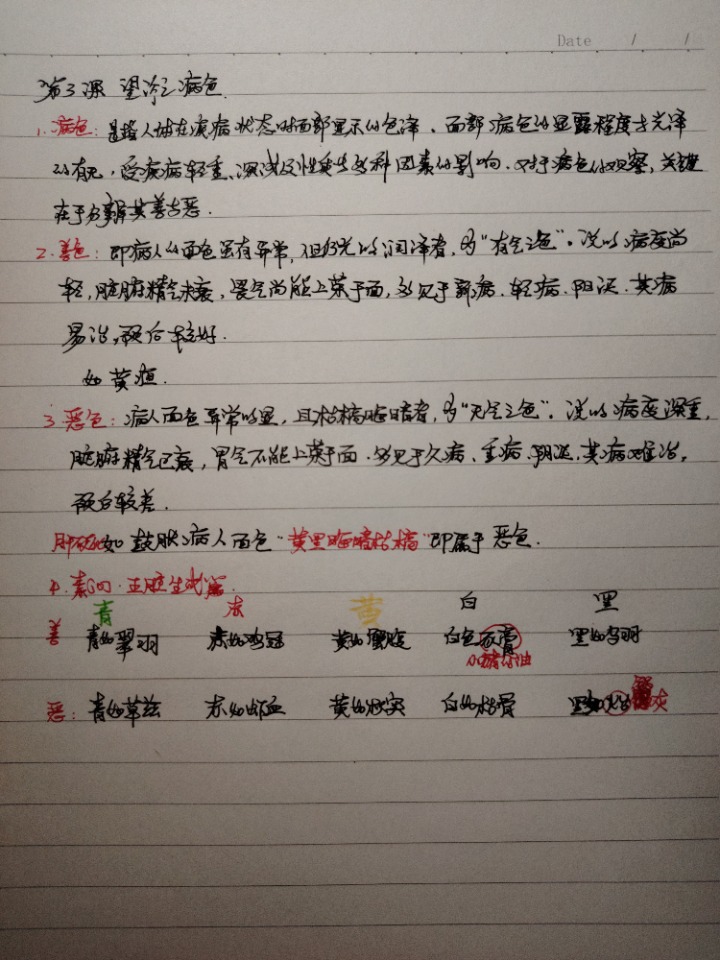 Date / /
第3课 望诊之病色.
1.病色:是指人体在疾病状态时面部显示的色泽、面部病色的显露程度与光泽
的有无,受疾病轻重、深浅及性质等多种因素的影响.对于病色的观察,关键
在于分辨其善与恶.
2.善色:即病人的面色虽有异常,但仍光明润泽者,为"有气之色"。说明病变尚
轻,脏腑精气未衰,胃气尚能上荣于面,多见于新病、轻病、阳证.其病
易治,预后较好.
如黄疸.
3.恶色:病人面色异常明显,且枯槁晦暗者,为"无气之色"。说明病变深重,
脏腑精气已衰,胃气不能上荣于面.多见于久病、重病、阴证,其病难治,
预后较差.
如鼓胀病人面色"黄黑晦暗枯槁"即属于恶色.
4.素问.五脏生成篇
青 赤 黄 白 黑
善 青如翠羽 赤如鸡冠 黄如蟹腹 白色豕膏 黑如乌羽
恶: 青如草兹 赤如衃血 黄如枳实 白如枯骨 黑如 灰